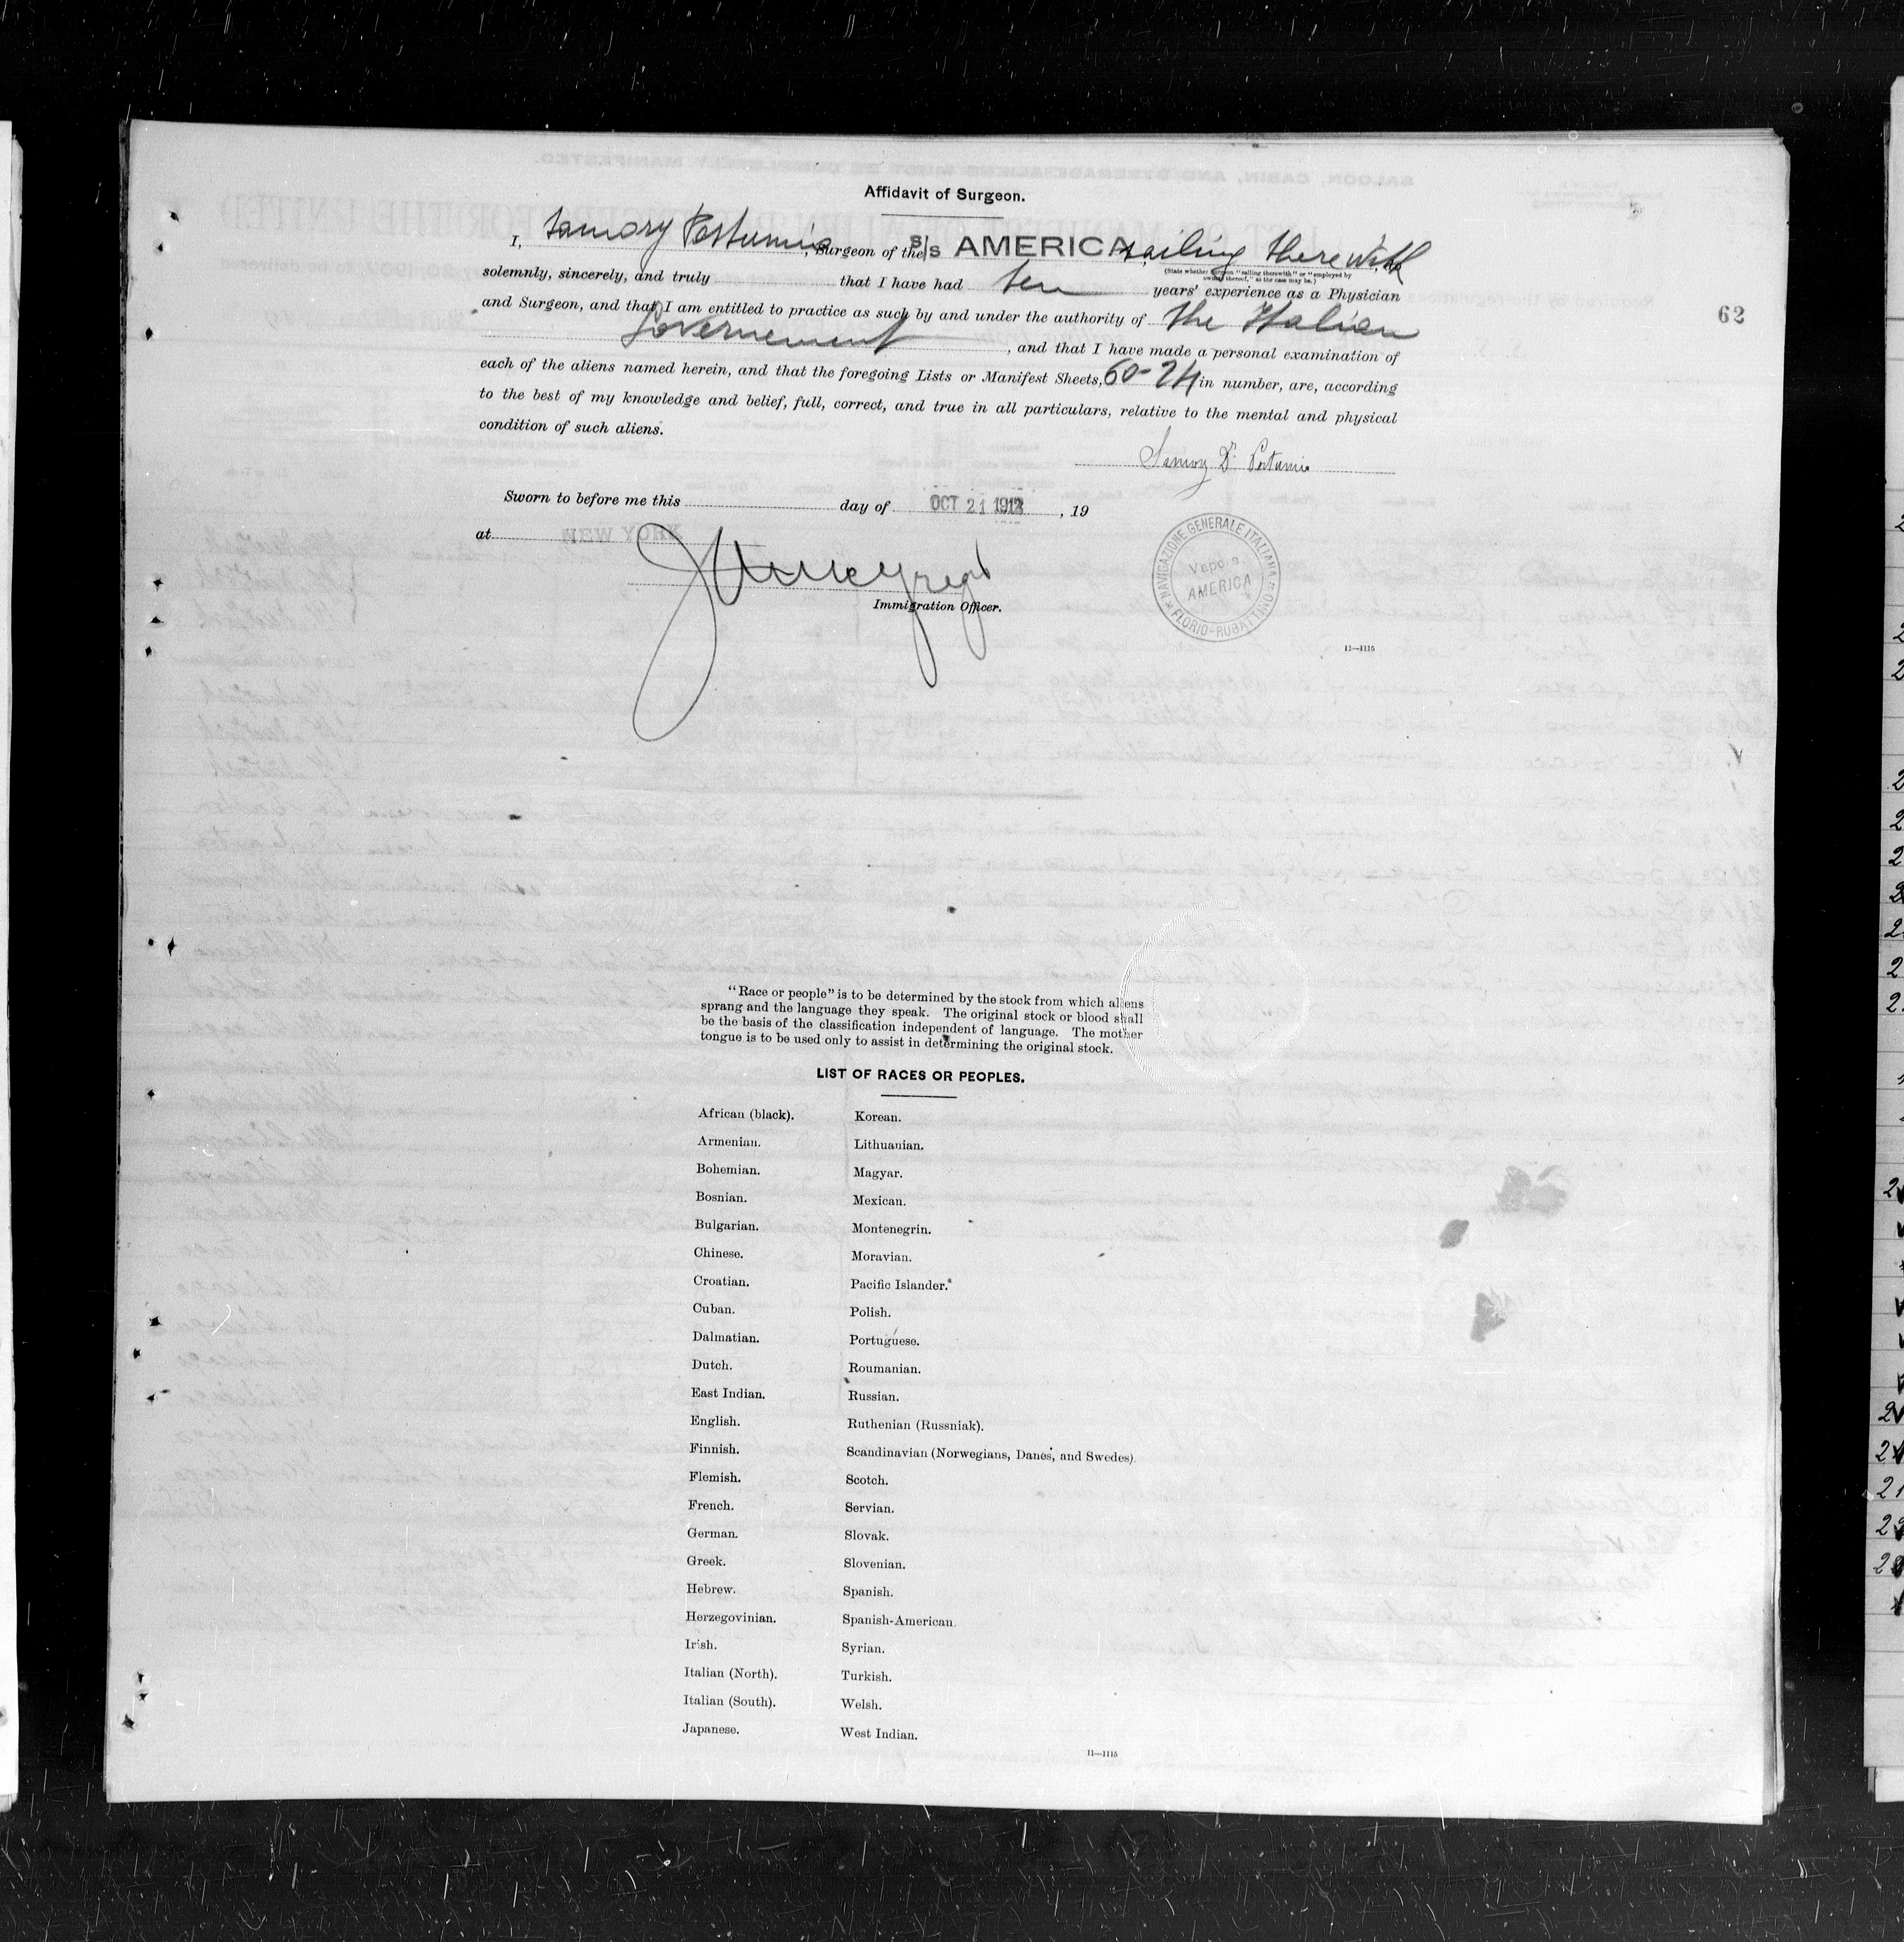 Affidavit of Surgeon.
I, Postumio, Surgeon of the S/S AMERICA sailing therewith
(State whether surgeon "sailing therewith" or "employed by
owners thereof," as the case may be.)
solemnly, sincerely, and truly that I have had ten years' experience as a Physician
and Surgeon, and that I am entitled to practice as such by and under the authority of the Italian
Governement, and that I have made a personal examination of
each of the aliens named herein, and that the foregoing Lists or Manifest Sheets, 60-24 in number, are, according
to the best of my knowledge and belief, full, correct, and true in all particulars, relative to the mental and physical
condition of such aliens.
62
Dr.
Sworn to before me this day of OCT 21 1912, 19
at NEW YORK
Immigration Officer.
NAVIGAZIONE GENERALE ITALIANA
Vapore
AMERICA
FLORIO-RUBATTINO
11—1115
"Race or people" is to be determined by the stock from which aliens
sprang and the language they speak. The original stock or blood shall
be the basis of the classification independent of language. The mother
tongue is to be used only to assist in determining the original stock.
LIST OF RACES OR PEOPLES.
African (black). Korean.
Armenian. Lithuanian.
Bohemian. Magyar.
Bosnian. Mexican.
Bulgarian. Montenegrin.
Chinese. Moravian.
Croatian. Pacific Islander.
Cuban. Polish.
Dalmatian. Portuguese.
Dutch. Roumanian.
East Indian. Russian.
English. Ruthenian (Russniak).
Finnish. Scandinavian (Norwegians, Danes, and Swedes).
Flemish. Scotch.
French. Servian.
German. Slovak.
Greek. Slovenian.
Hebrew. Spanish.
Herzegovinian. Spanish-American.
Irish. Syrian.
Italian (North). Turkish.
Italian (South). Welsh.
Japanese. West Indian.
11—1115